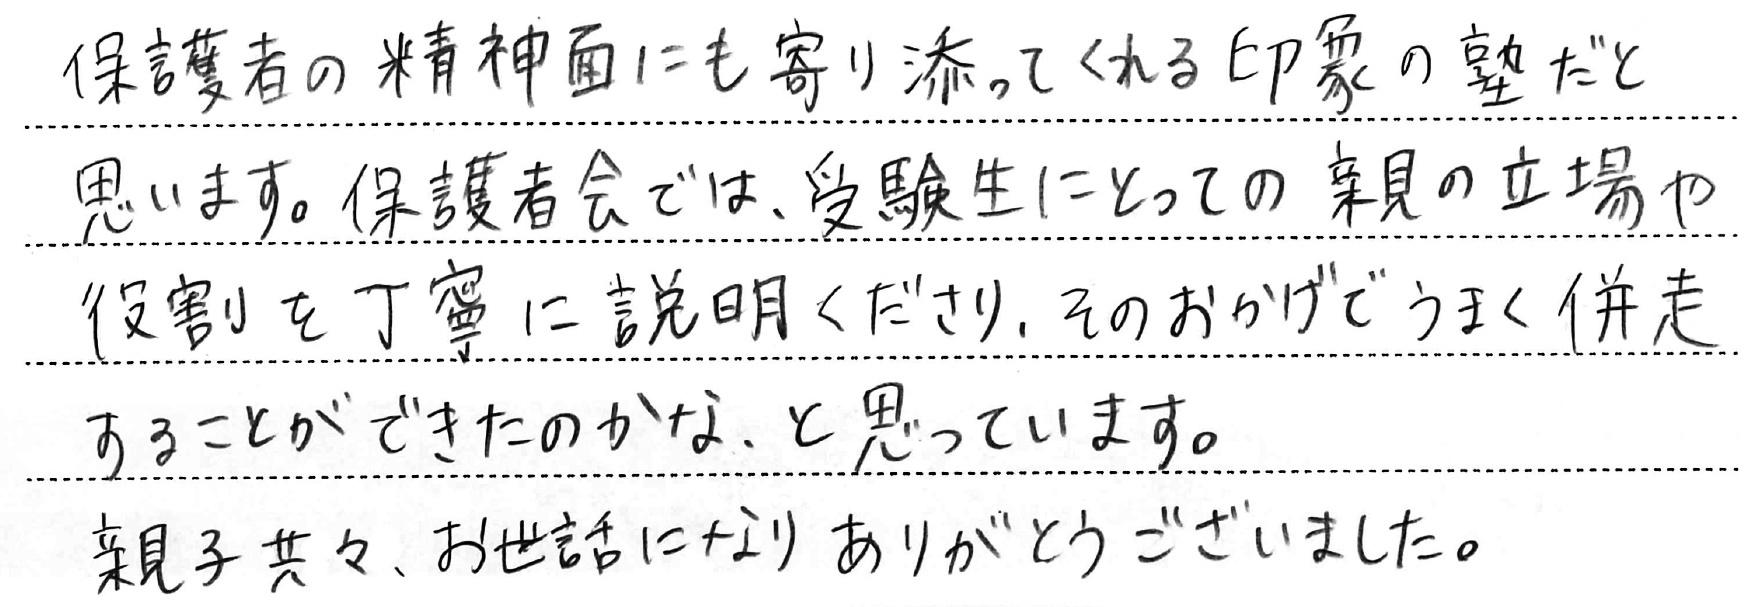 保護者の精神面にも寄り添ってくれる印象の塾だと
思います。保護者会では、受験生にとっての親の立場や
役割を丁寧に説明くださり、そのおかげでうまく併走
することができたのかな、と思っています。
親子共々、お世話になりありがとうございました。